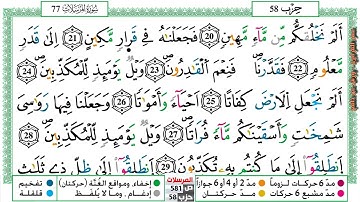 حِزْب 58
سُورَةُ المُرْسَلَات 77
أَلَمْ نَخْلُقكُّم مِّن مَّآءٍ مَّهِينٍ 20 فَجَعَلْنَٰهُ فِي قَرَارٍ مَّكِينٍ 21 إِلَىٰ قَدَرٍ
مَّعْلُومٍ 22 فَقَدَّرْنَا فَنِعْمَ ٱلْقَٰدِرُونَ 23 وَيْلٌ يَوْمَئِذٍ لِّلْمُكَذِّبِينَ 24
أَلَمْ نَجْعَلِ ٱلَارْضَ كِفَاتًا 25 أَحْيَآءً وَأَمْوَٰتًا 26 وَجَعَلْنَا فِيهَا رَوَٰسِيَ
شَٰمِخَٰتٍ وَأَسْقَيْنَٰكُم مَّآءً فُرَاتًا 27 وَيْلٌ يَوْمَئِذٍ لِّلْمُكَذِّبِينَ 28
ٱنطَلِقُوٓاْ إِلَىٰ مَا كُنتُم بِهِۦ تُكَذِّبُونَ 29 ٱنطَلِقُوٓاْ إِلَىٰ ظِلٍّ ذِي ثَلَٰثِ
مدّ 6 حركات لزوماً مدّ 2 أو 4 أو 6 جوازاً
مدّ مشبع 6 حركات مدّ حركتان
المرسلات
ص 581
حزب 58
إخفاء، ومواقع الغُنَّة (حركتان) تفخيم
إدغام، وما لا يُلفَظ قلقلة